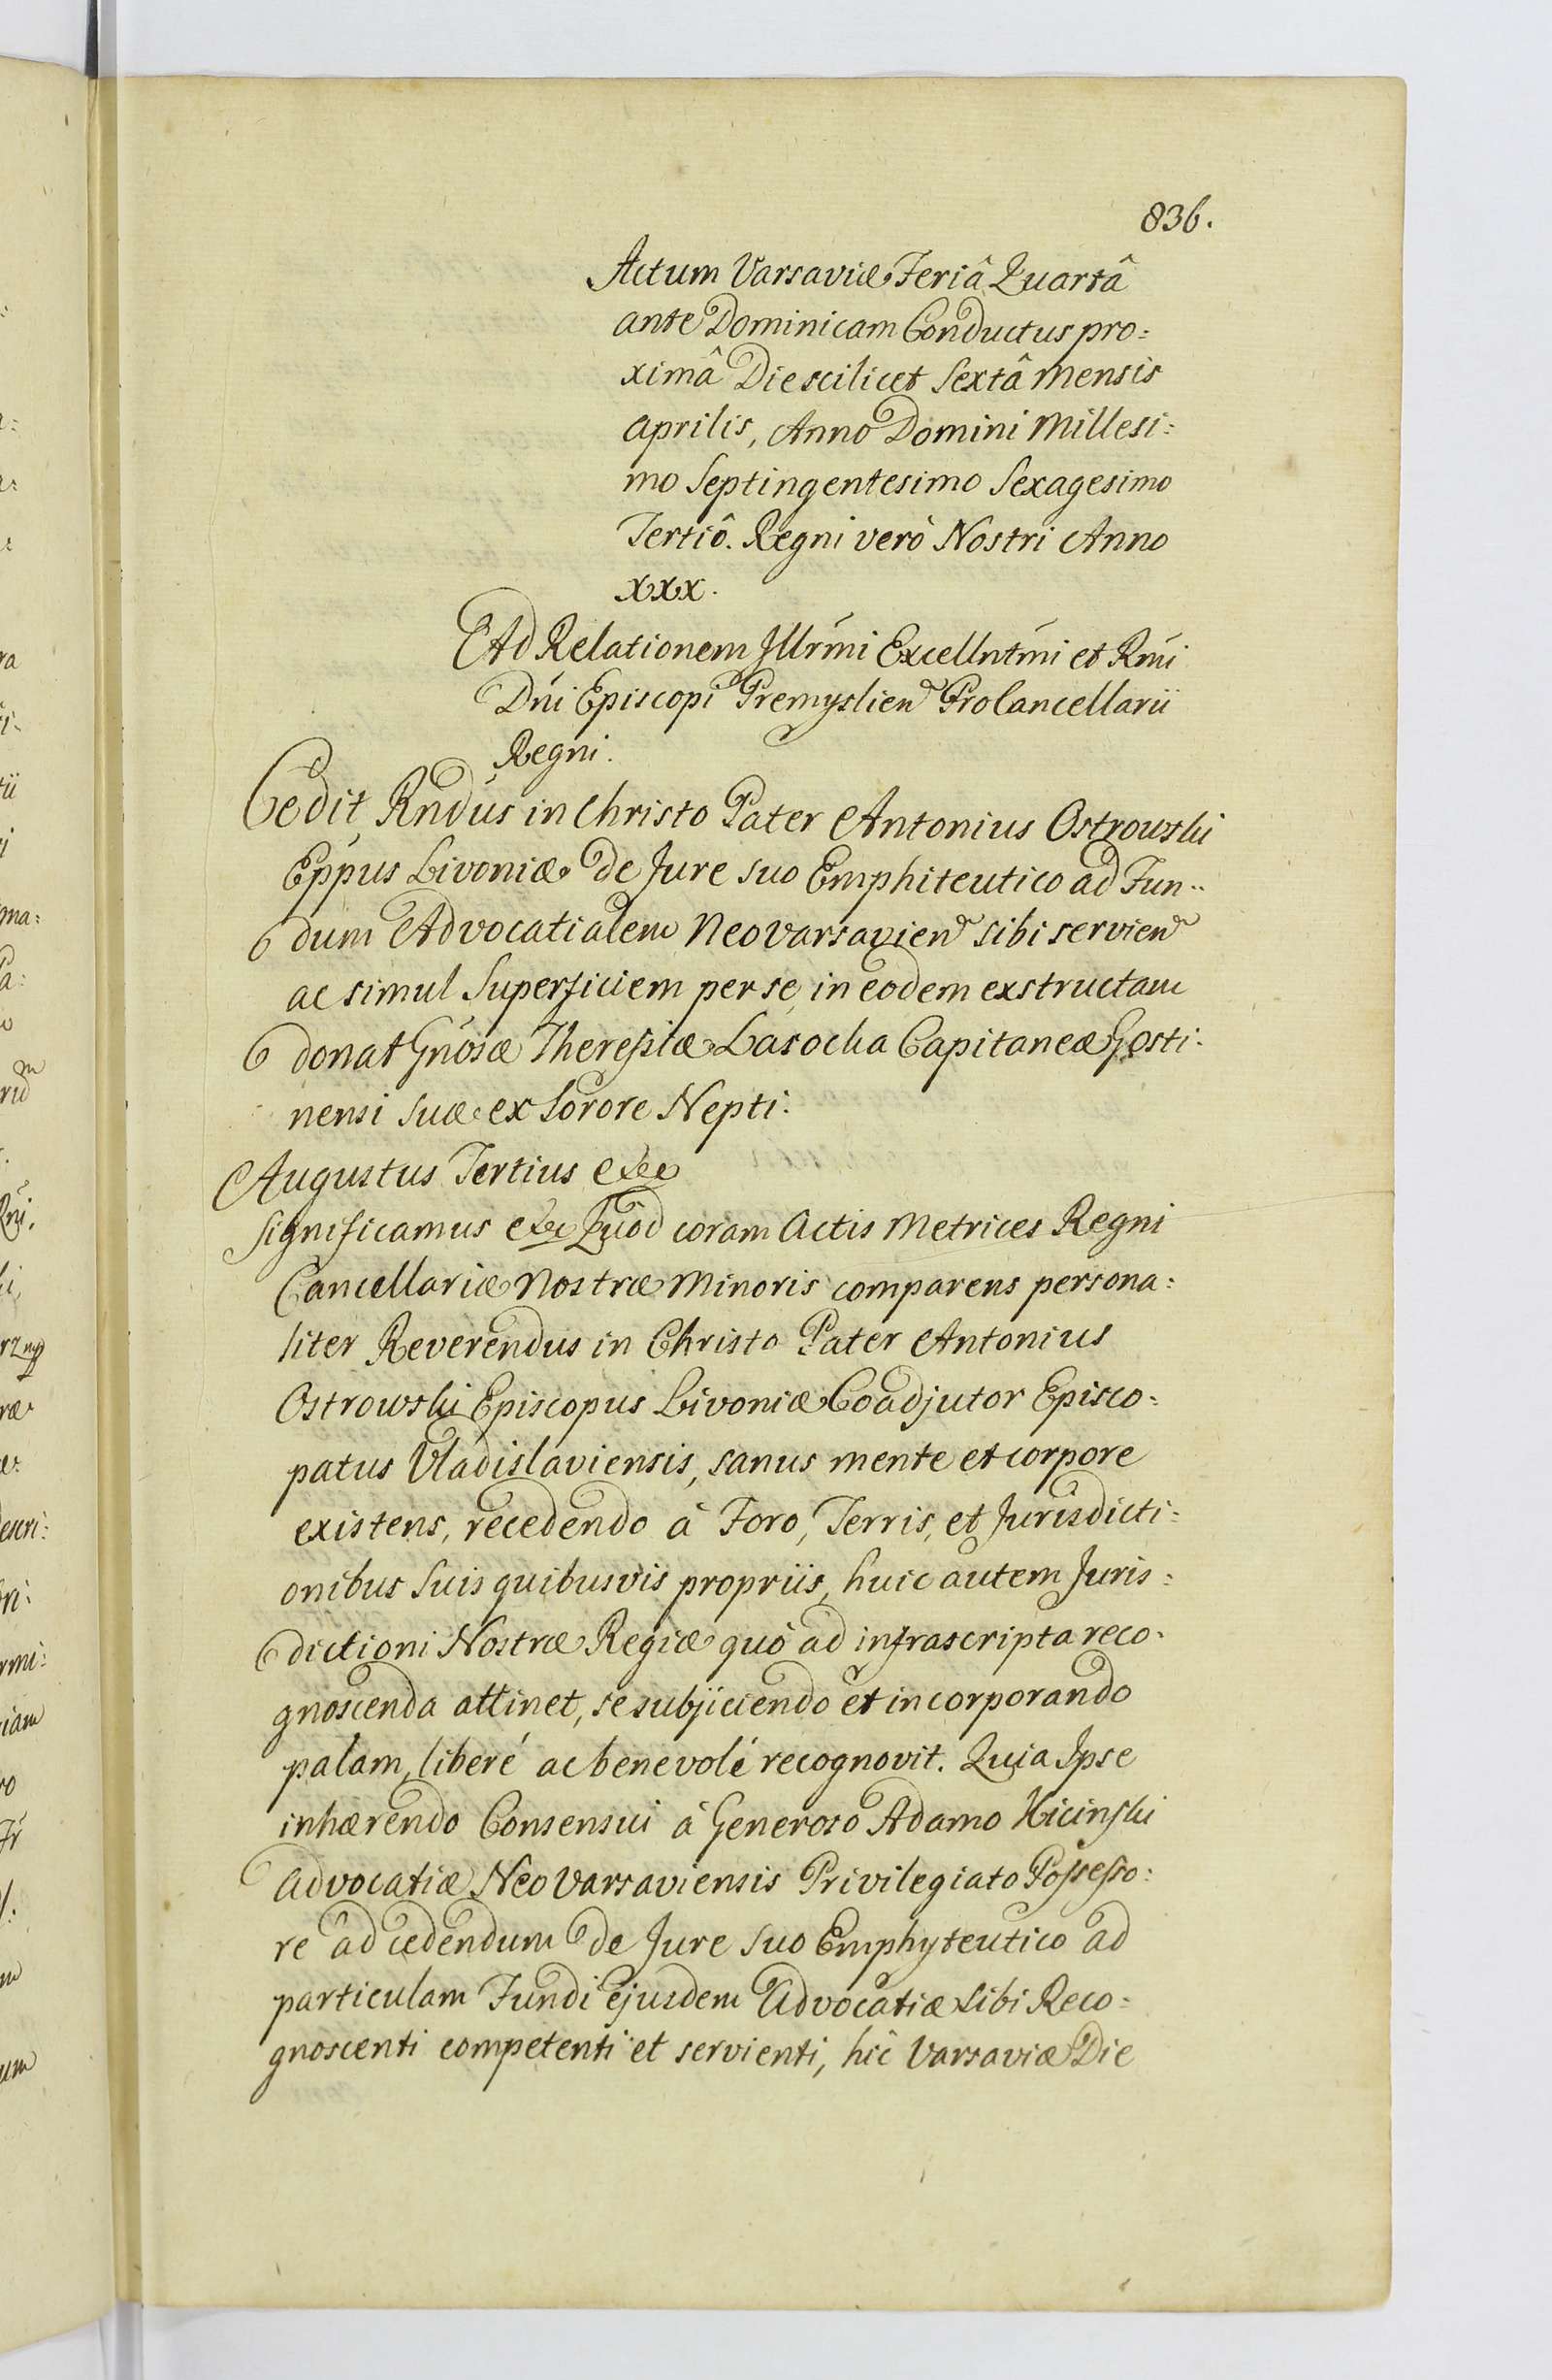 836.
Actum Varsaviæ Feriâ Quartâ
ante Dominicam Conductus pro=
ximâ Die scilicet Sextâ Mensis
Aprilis, Anno Domini Millesi=
mo Septingentesimo Sexagesimo
Tertiô. Regni verò Nostri Anno
XXX.
Ad Relationem Illrm̃i Excellntm̃i et Rm̃i
Dñi Episcopi Premyslien Procancellarii
Regni.
Cedit Rndus in Christo Pater Antonius Ostrowski
Eppus Livoniæ de Jure suo Emphiteutico ad Fun=
dum Advocatialem Neovarsavien sibi servien
ac simul Superficiem per se in eodem exstructam
donat Gñosæ Theresiæ Lasocka Capitaneæ Gosti=
nensi suæ ex Sorore Nepti.
Augustus Tertius etc
Significamus etc Quod coram Actis Metrices Regni
Cancellariæ Nostræ Minoris comparens persona=
liter Reverendus in Christo Pater Antonius
Ostrowski Episcopus Livoniæ Coadjutor Episco=
patus Vladislaviensis, sanus mente et corpore
existens, recedendo à Foro, Terris, et Jurisdicti=
onibus Suis quibusvis propriis, huic autem Juris=
dictioni Nostræ Regiæ quò ad infrascripta reco=
gnoscenda attinet, se subjiciendo et incorporando
palam, liberé ac benevolé recognovit. Quia Ipse
inhærendo Consensui à Generoso Adamo Kicinski
Advocatiæ Neovarsaviensis Privilegiato Possesso=
re ad cedendum de Jure suo Emphyteutico ad
particulam Fundi ejusdem Advocatiæ sibi Reco=
gnoscenti competenti et servienti, hic Varsaviæ Die